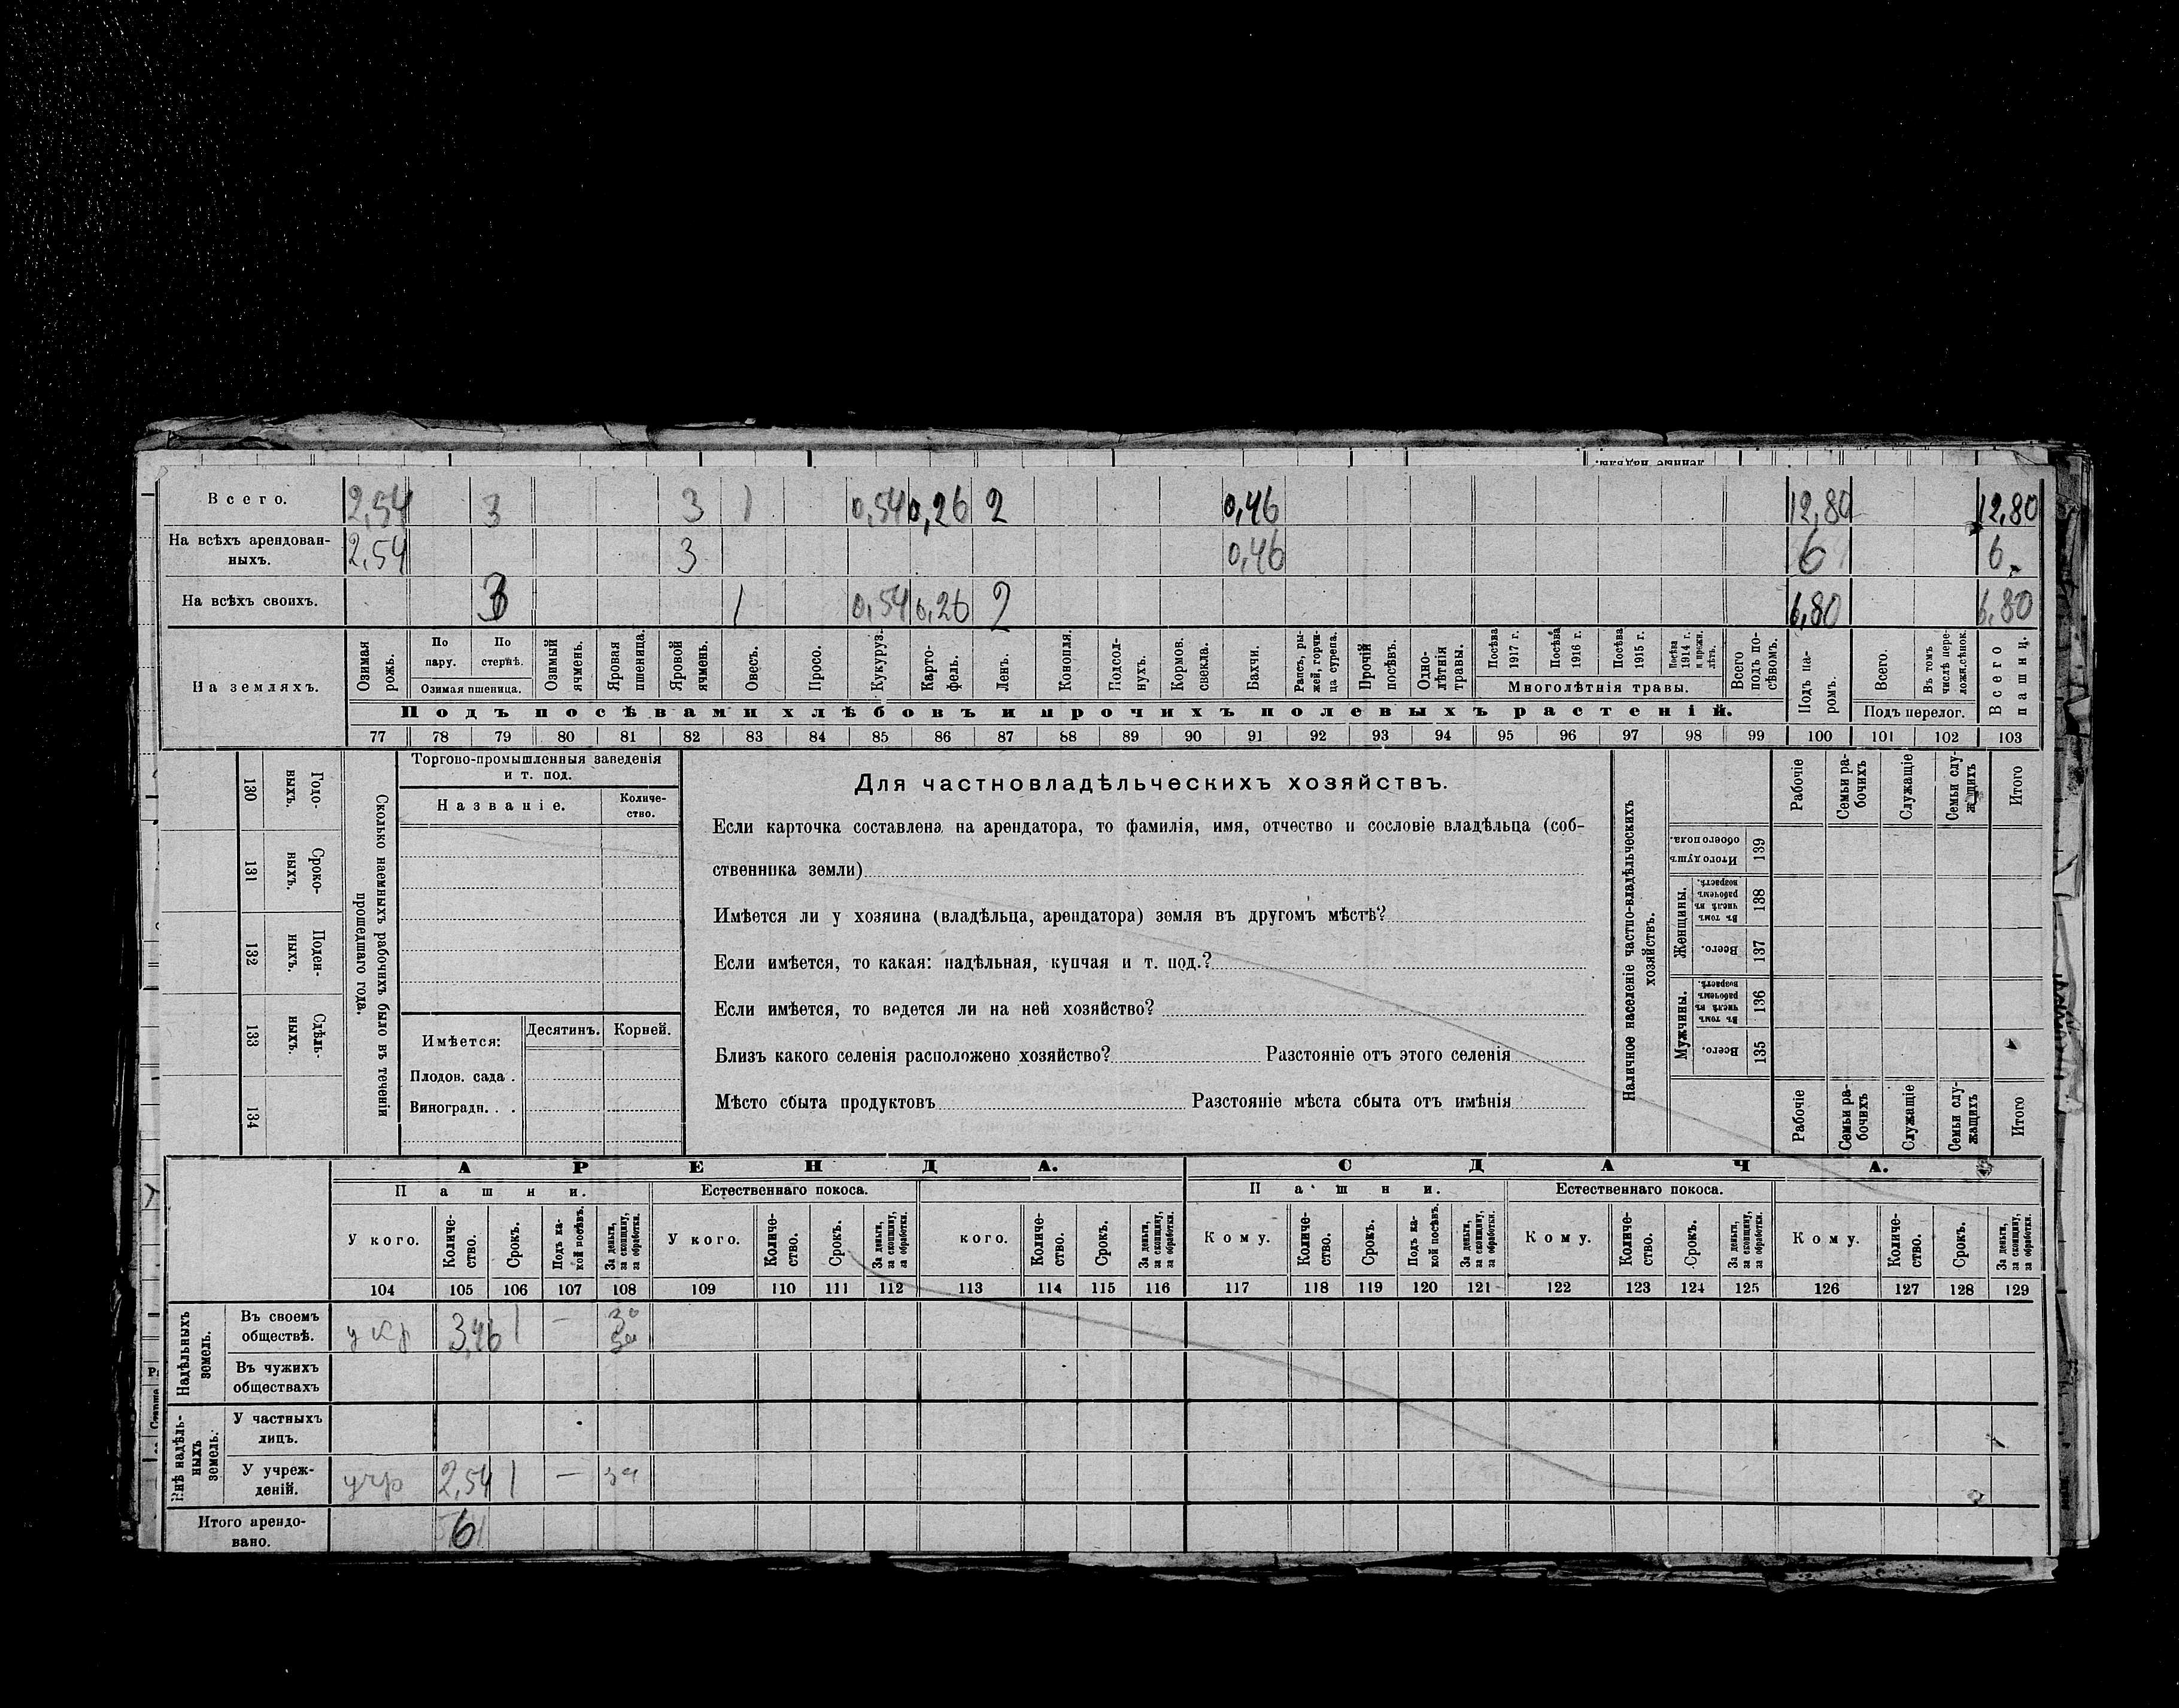 Всего. 2,54 3 3 1 0,54 0,26 2 0,46 12,80 12,80
На всѣхъ арендован-
ныхъ. 2,54 3 0,46 6 6
На всѣхъ своихъ. 3 1 0,54 0,26 2 6,80 6,80
На земляхъ.
Озимая рожь.
По пару.
По стернѣ.
Озимая пшеница.
Озимый ячмень.
Яровая пшеница.
Яровой ячмень.
Овесъ.
Просо.
Кукуруз.
Карто-
фель.
Ленъ.
Конопля.
Подсол-
нухъ.
Кормов. свекла.
Бахчи.
Рапсъ, ры-
жей, горчи-
ца сурепа.
Прочій посѣвъ.
Одно-
лѣтнія травы.
Посѣва 1917 г.
Посѣва 1916 г.
Посѣва 1915 г.
Посѣва 1914 г. и прежн. лѣтъ.
Многолѣтнія травы.
Всего подъ по-
сѣвомъ.
Подъ па-
ромъ.
Всего.
Въ томъ числѣ пере-
ложн.сѣнок.
Подъ перелог.
Всего пашни.
Подъ посѣвами хлѣбовъ и прочихъ полевыхъ растеній.
77 78 79 80 81 82 83 84 85 86 87 88 89 90 91 92 93 94 95 96 97 98 99 100 101 102 103
Сколько наемныхъ рабочихъ было въ теченіи
прошедшаго года.
Годо-
выхъ. 130
Сроко-
ныхъ. 131
Поден-
ныхъ. 132
Сдѣль-
ныхъ. 133
134
Торгово-промышленныя заведенія
и т. под.
Названіе.
Количе-
ство.
Имѣется: Десятинъ. Корней.
Плодов. сада .
Виноградн. . .
Для частновладѣльческихъ хозяйствъ.
Если карточка составлена на арендатора, то фамилія, имя, отчество и сословіе владѣльца (соб-
ственника земли)
Имѣется ли у хозяина (владѣльца, арендатора) земля въ другомъ мѣстѣ?
Если имѣется, то какая: надѣльная, купчая и т. под.?
Если имѣется, то ведется ли на ней хозяйство?
Близъ какого селенія расположено хозяйство? Разстояніе отъ этого селенія
Мѣсто сбыта продуктовъ Разстояніе мѣста сбыта отъ имѣнія
Наличное населеніе частно-владѣльческихъ
хозяйствъ.
Рабочіе
Семьи ра-
бочихъ
Служащіе
Семьи слу-
жащихъ
Итого
Итого душъ обоего пола. 139
Женщины.
Въ томъ числѣ въ рабочемъ возрастѣ. 138
Всего. 137
Мужчины.
Въ томъ числѣ въ рабочемъ возрастѣ. 136
Всего. 135
Рабочіе
Семьи ра-
бочихъ
Служащіе
Семьи слу-
жащихъ
Итого
АРЕНДА. СДАЧА.
Пашни. Естественнаго покоса. Пашни. Естественнаго покоса.
У кого. Количе-
ство. Срокъ. Подъ ка-
кой посѣвъ. За деньги, за скопщину, за обработки.
У кого. Количе-
ство. Срокъ. За деньги, за скопщину, за обработки.
кого. Количе-
ство. Срокъ. За деньги, за скопщину, за обработки.
Кому. Количе-
ство. Срокъ. Подъ ка-
кой посѣвъ. За деньги, за скопщину, за обработки.
Кому. Количе-
ство. Срокъ. За деньги, за скопщину, за обработки.
Кому. Количе-
ство. Срокъ. За деньги, за скопщину, за обработки.
104 105 106 107 108 109 110 111 112 113 114 115 116 117 118 119 120 121 122 123 124 125 126 127 128 129
Надѣльныхъ
земель.
Въ своемъ
обществѣ. у кр 3,46 1 —
Въ чужихъ
обществахъ
Внѣ надѣль-
ныхъ
земель.
У частныхъ
лицъ.
У учреж-
деній. учр 2,54 1 —
Итого арендо-
вано. 6